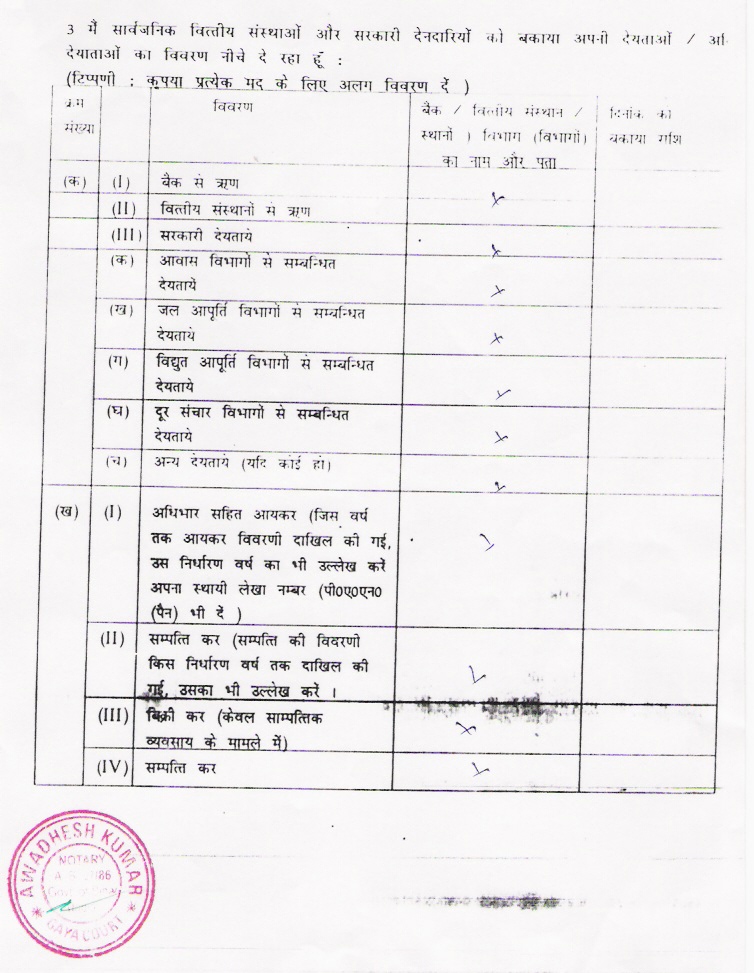 3 मैं सार्वजनिक वित्तीय संस्थाओं और सरकारी देनदारियों को बकाया अपनी देयताओं / अति
देयाताओं का विवरण नीचे दे रहा हूँ :
(टिप्पणी : कृपया प्रत्येक मद के लिए अलग विवरण दें )
क्रम संख्या विवरण बैंक / वित्तीय संस्थान / दिनांक को
स्थानों ) विभाग (विभागों) बकाया राशि
का नाम और पता
(क) (I) बैंक से ऋण
(II) वित्तीय संस्थानों से ऋण x
(III) सरकारी देयताये x
(क) आवास विभागों से सम्बन्धित
देयतायें x
(ख) जल आपूर्ति विभागों से सम्बन्धित
देयताये x
(ग) विद्युत आपूर्ति विभागों से सम्बन्धित
देयताये x
(घ) दूर संचार विभागों से सम्बन्धित
देयताये x
(च) अन्य देयताये (यदि कोई हो) x
(ख) (I) अधिभार सहित आयकर (जिस वर्ष
तक आयकर विवरणी दाखिल की गई,
उस निर्धारण वर्ष का भी उल्लेख करें
अपना स्थायी लेखा नम्बर (पी०ए०एन०
(पैन) भी दें )
(II) सम्पत्ति कर (सम्पत्ति की विवरणी
किस निर्धारण वर्ष तक दाखिल की
गई, उसका भी उल्लेख करें ।
(III) बिक्री कर (केवल साम्पत्तिक x
व्यवसाय के मामले में)
(IV) सम्पत्ति कर x
AWADHESH KUMAR
NOTARY
GAYA COURT